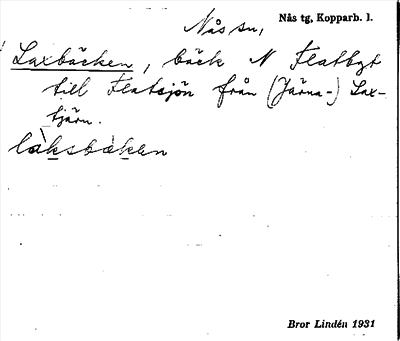 Nås sn, Nås tg, Kopparb. l.
Laxbäcken, bäck N Flatbyt
till Flatsjön från (Järna-) Lax-
tjärn.
làksbàken
Bror Lindén 1931